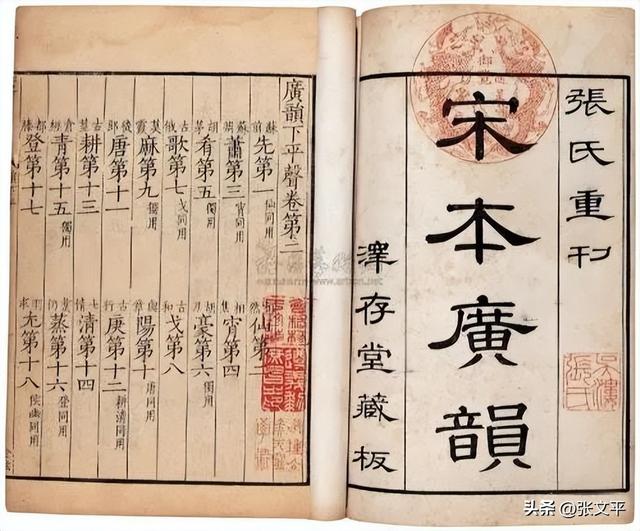 張氏重刊
宋本廣韻
澤存堂藏板
廣韻下平聲卷第二
先第一仙同用 仙第二
蕭第三宵同用 宵第四
胡茅肴第五獨用 胡豪第六獨用
古俄歌第七戈同用 古戈第八
莫霞麻第九獨用 與陽第十唐同用
郎唐第十一 古行庚第十二耕清同用
古莖耕第十三 七清第十四
倉經青第十五獨用 仍蒸第十六登同用
都滕登第十七 求尤第十八侯幽同用
头条 @张文平